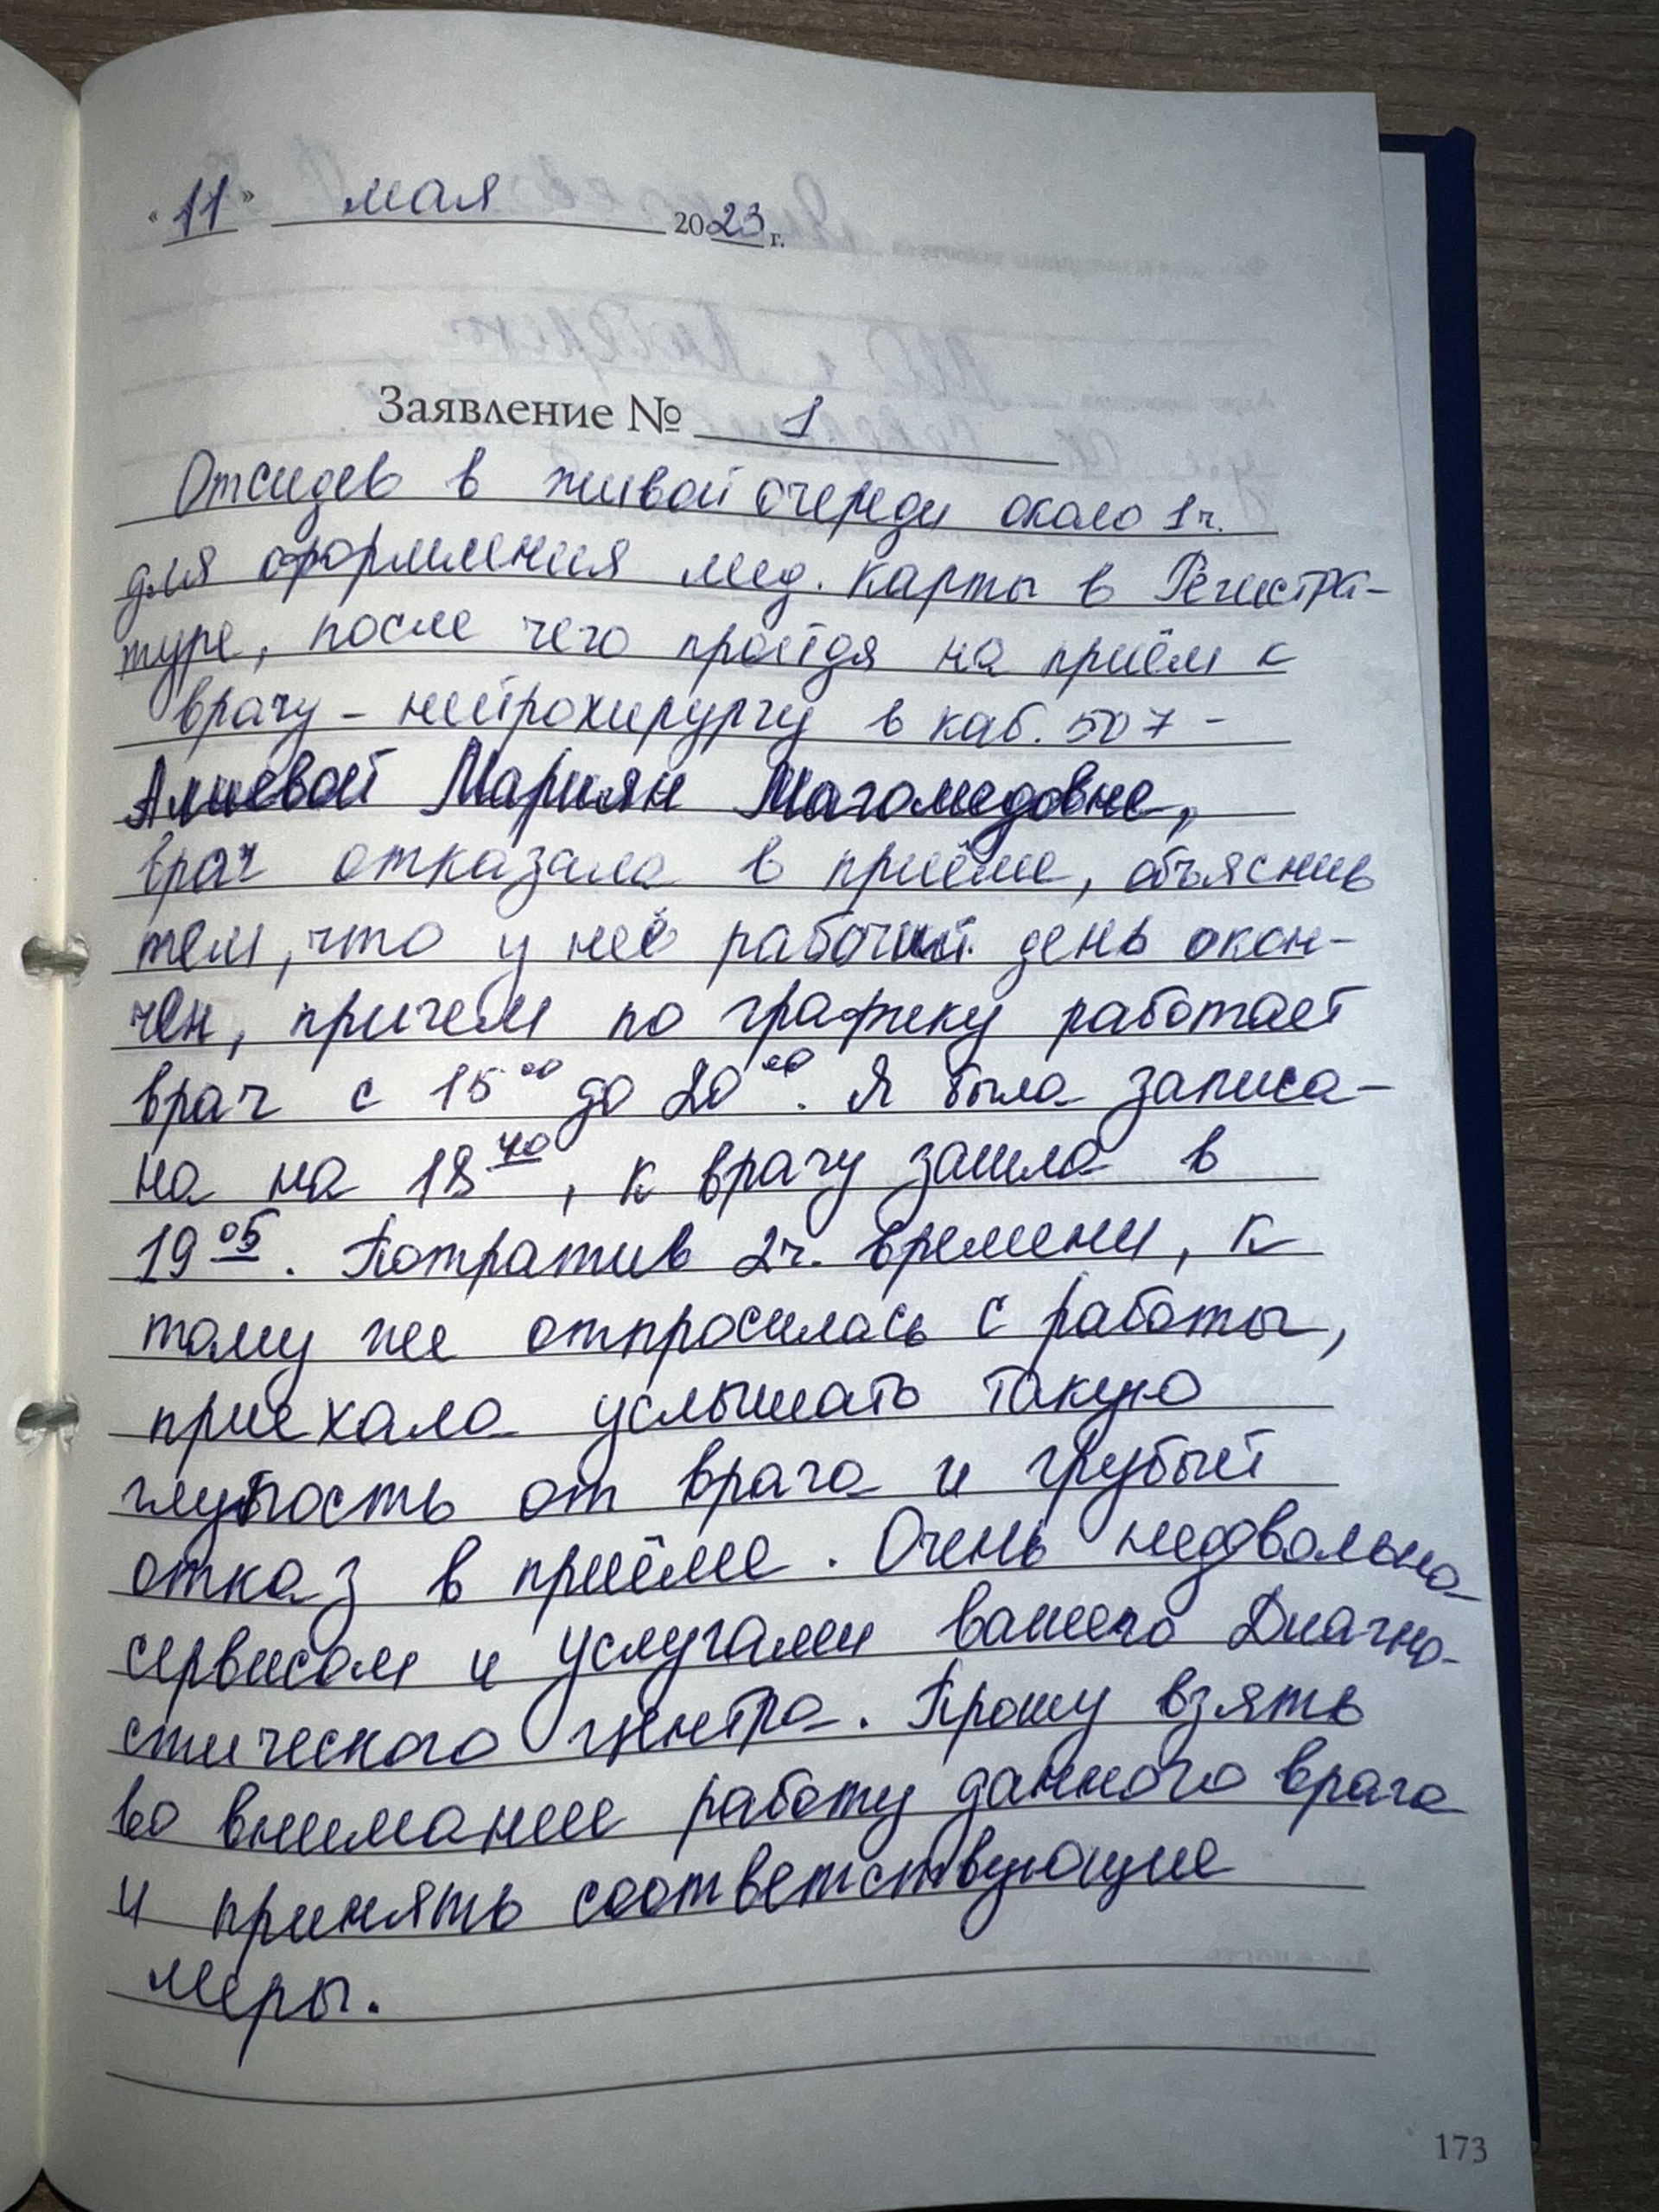 "11" мая 2023 г.
Заявление № 1
Отсидев в живой очереди около 1ч.
для оформления мед. карты в Регистра-
туре, после чего пройдя на приём к
врачу - нейрохирургу в каб. 507 -
Алиевой Мариян Магомедовне,
врач отказала в приёме, объяснив
тем, что у неё рабочий день окон-
чен, причем по графику работает
врач с 15⁰⁰ до 20⁰⁰. Я была записа-
на на 18⁴⁰, к врачу зашла в
19⁰⁵. Потратив 2ч. времени, к
тому же отпросилась с работы,
приехала услышать такую
глупость от врача и грубый
отказ в приёме. Очень недовольна
сервисом и услугами вашего Диагно-
стического центра. Прошу взять
во внимание работу данного врача
и принять соответствующие
меры.
173